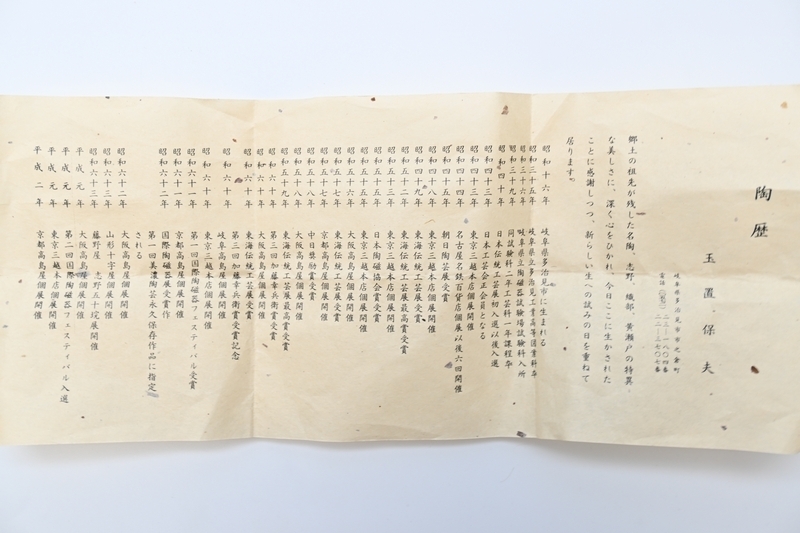 陶歴
玉置保夫
岐阜県多治見市市之倉町
郷土の祖先が残した名陶、志野、織部、黄瀬戸の特異
な美しさに、深く心をひかれ、今日ここに生かされた
ことに感謝しつつ、新らしい生への試みの日を重ねて
居ります。
昭和十六年 岐阜県多治見市に生まれる
昭和三十五年 岐阜県立多治見工業高等窯業科卒
昭和三十九年 岐阜県立陶磁器試験場試験科入所
同試験科二年工芸科一年課程卒
昭和四十年 日本伝統工芸展初入選以後入選
昭和四十三年 日本工芸会正会員となる
昭和四十三年 東京三越本店個展開催
昭和四十四年 名古屋名鉄百貨店個展以後六回開催
昭和四十五年 朝日陶芸展受賞
昭和四十八年 東京三越本店個展開催
昭和四十九年 東海伝統工芸展最高賞受賞
昭和五十二年 東海伝統工芸展受賞
昭和五十三年 大阪高島屋個展開催
昭和五十五年 日本陶磁協会賞受賞
昭和五十六年 東京三越本店個展開催
昭和五十六年 大阪高島屋個展開催
昭和五十七年 東海伝統工芸展受賞
昭和五十八年 中日奨励賞受賞
昭和五十八年 大阪高島屋個展開催
昭和五十九年 東海伝統工芸展最高賞受賞
昭和六十年 第三回加藤幸兵衛賞受賞
昭和六十年 大阪高島屋個展開催
昭和六十年 東海伝統工芸展受賞
昭和六十年 第三回加藤幸兵衛賞受賞記念
岐阜高島屋個展開催
昭和六十年 東京三越本店個展開催
昭和六十一年 第一回国際陶磁器フェスティバル受賞
昭和六十一年 京都高島屋個展開催
昭和六十二年 国際陶磁器展受賞作
第一回美濃陶芸永久保存作品に指定
される
昭和六十二年 大阪高島屋個展開催
昭和六十三年 山形十字屋個展開催
昭和六十三年 藤野屋・志野五十碗展開催
平成元年 大阪高島屋個展開催
平成元年 第二回国際陶磁器フェスティバル入選
平成元年 東京三越本店個展開催
平成二年 京都高島屋個展開催